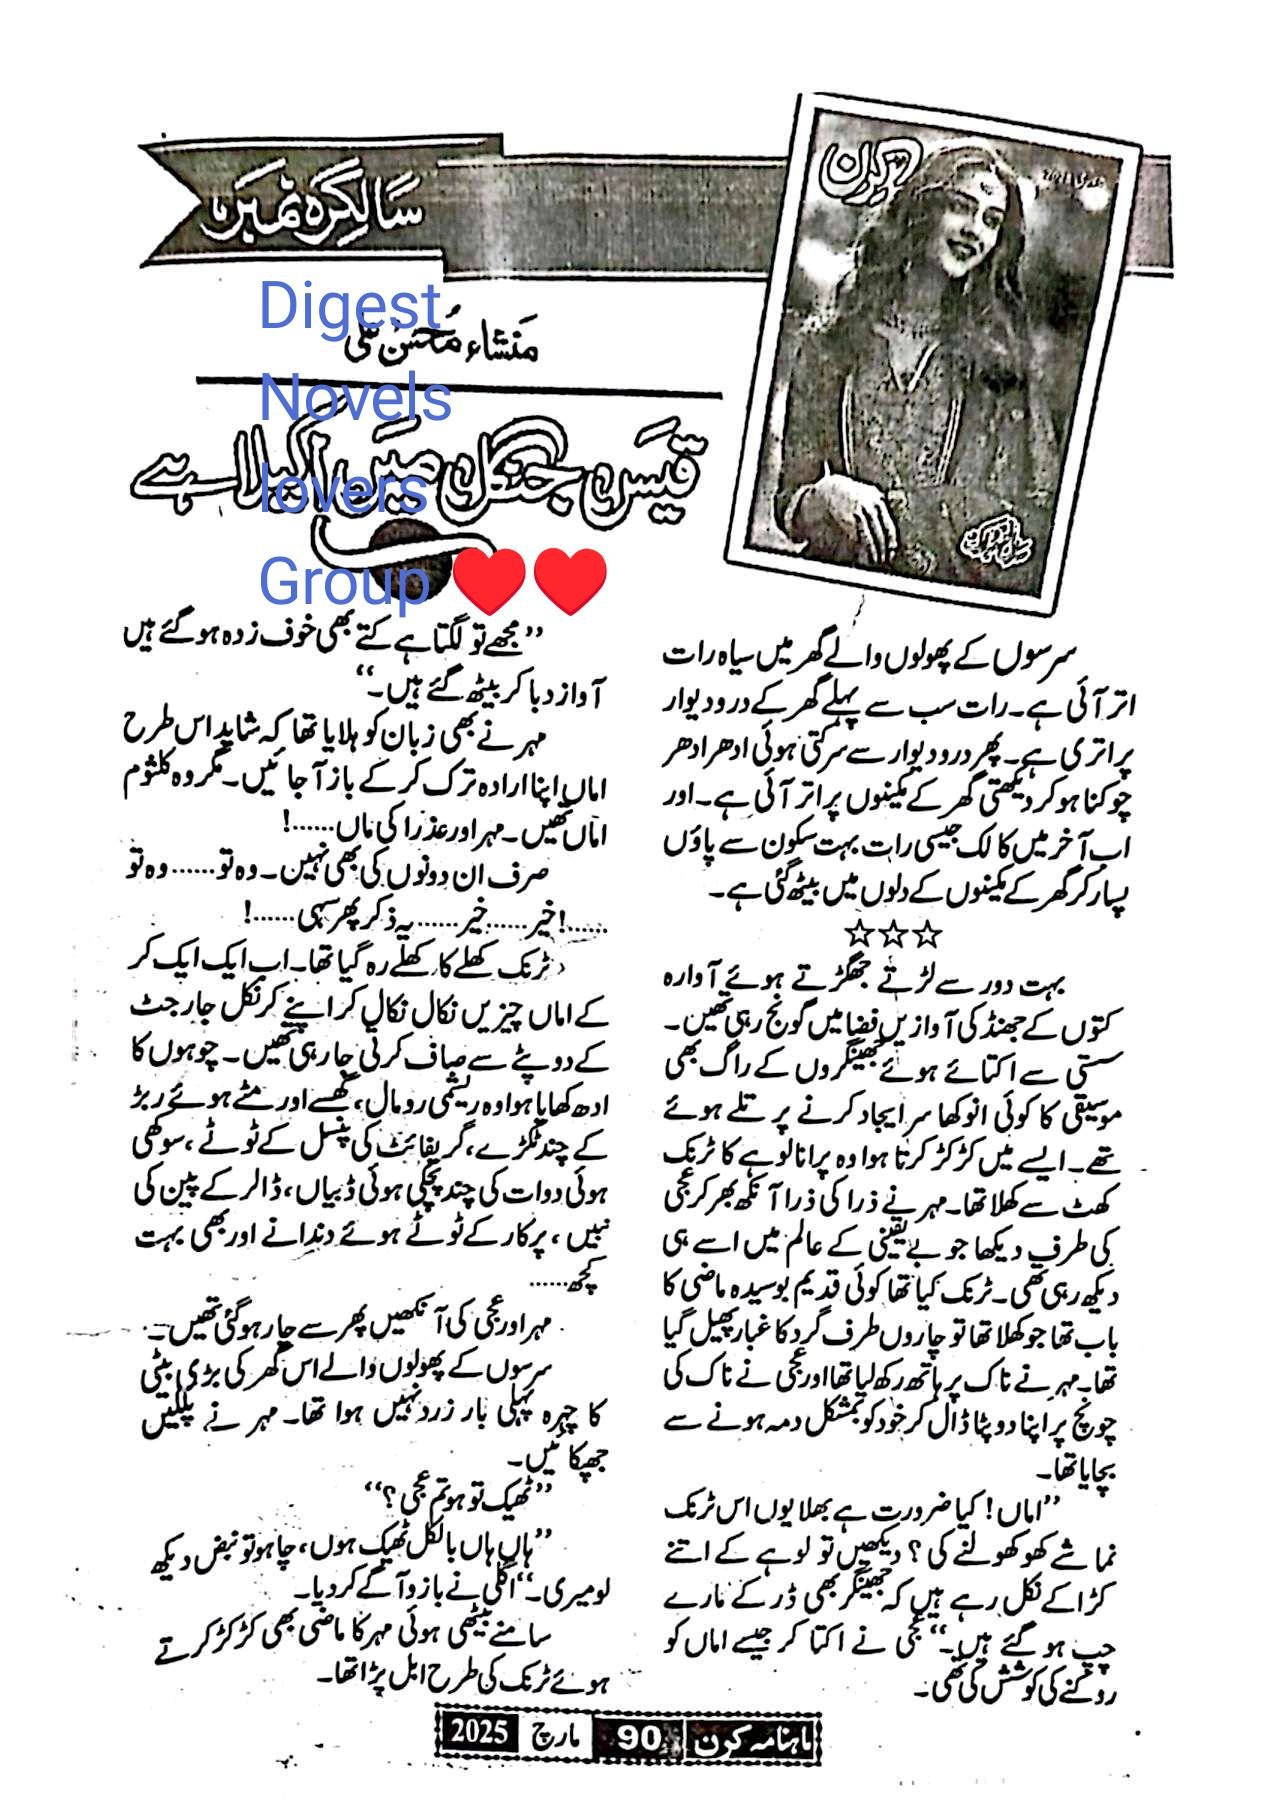 سالگرہ نمبر
کرن
سالگرہ نمبر
Digest
Novels
lovers
Group ❤️❤️
منشاء محسن علی
قیس جنگل میں اکیلا ہے
سرسوں کے پھولوں والے گھر میں سیاہ رات
اتر آئی ہے۔ رات سب سے پہلے گھر کے در و دیوار
پر اتری ہے۔ پھر در و دیوار سے سرکتی ہوئی ادھر ادھر
چوکنا ہو کر دیکھتی گھر کے مکینوں پر اتر آئی ہے۔ اور
اب آخر میں کالک جیسی رات بہت سکون سے پاؤں
پسار کر گھر کے مکینوں کے دلوں میں بیٹھ گئی ہے۔
☆☆☆
بہت دور سے لڑتے جھگڑتے ہوئے آوارہ
کتوں کے جھنڈ کی آوازیں فضا میں گونج رہی تھیں۔
سستی سے اکتائے ہوئے جھینگروں کے راگ بھی
موسیقی کا کوئی انوکھا سر ایجاد کرنے پر تلے ہوئے
تھے۔ ایسے میں کڑ کڑ کرتا ہوا وہ پرانا لوہے کا ٹرنک
کھٹ سے کھلا تھا۔ مہر نے ذرا کی ذرا آنکھ بھر کر عجی
کی طرف دیکھا جو بے یقینی کے عالم میں اسے ہی
دیکھ رہی تھی۔ ٹرنک کیا تھا کوئی قدیم بوسیدہ ماضی کا
باب تھا جو کھلا تھا تو چاروں طرف گرد کا غبار پھیل گیا
تھا۔ مہر نے ناک پر ہاتھ رکھ لیا تھا اور عجی نے ناک کی
چونچ پر اپنا دوپٹا ڈال کر خود کو بمشکل دمہ ہونے سے
بچایا تھا۔
”اماں! کیا ضرورت ہے بھلا یوں اس ٹرنک
نما شے کو کھولنے کی؟ دیکھیں تو لوہے کے اتنے
کڑاکے نکل رہے ہیں کہ جھینگر بھی ڈر کے مارے
چپ ہو گئے ہیں۔“ عجی نے اکتا کر جیسے اماں کو
روکنے کی کوشش کی تھی۔
”مجھے تو لگتا ہے کتے بھی خوف زدہ ہو گئے ہیں
آواز دبا کر بیٹھ گئے ہیں۔“
مہر نے بھی زبان کو ہلایا تھا کہ شاید اس طرح
اماں اپنا ارادہ ترک کر کے باز آ جائیں۔ مگر وہ کلثوم
اماں تھیں۔ مہر اور عذرا کی ماں……!
صرف ان دونوں کی بھی نہیں۔ وہ تو…… وہ تو
……! خیر…… خیر…… یہ ذکر پھر سہی……!
ٹرنک کھلے کا کھلے رہ گیا تھا۔ اب ایک ایک کر
کے اماں چیزیں نکال نکال کر اپنے کرنکل جارجٹ
کے دوپٹے سے صاف کرتی جا رہی تھیں۔ چوہوں کا
ادھ کھایا ہوا وہ ریشمی رومال، گھسے اور مٹے ہوئے ربڑ
کے چند ٹکڑے، گریفائٹ کی پنسل کے ٹوٹے، سوکھی
ہوئی دوات کی چند پچکی ہوئی ڈبیاں، ڈالر کے پین کی
نبیں، پرکار کے ٹوٹے ہوئے دندانے اور بھی بہت
کچھ……
مہر اور عجی کی آنکھیں پھر سے چار ہو گئی تھیں۔
سرسوں کے پھولوں والے اس گھر کی بڑی بیٹی
کا چہرہ پہلی بار زرد نہیں ہوا تھا۔ مہر نے پلکیں
جھپکائیں۔
”ٹھیک تو ہو تم عجی؟“
”ہاں ہاں بالکل ٹھیک ہوں، چاہو تو نبض دیکھ
لو میری۔“ اگلی نے بازو آگے کر دیا۔
سامنے بیٹھی ہوئی مہر کا ماضی بھی کڑ کڑ کرتے
ہوئے ٹرنک کی طرح ابل پڑا تھا۔
ماہنامہ کرن 90 مارچ 2025